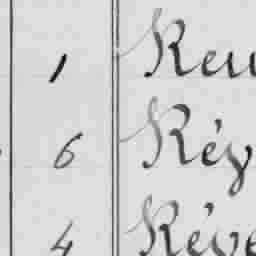 1 Reu
6 Rég
4 Réve